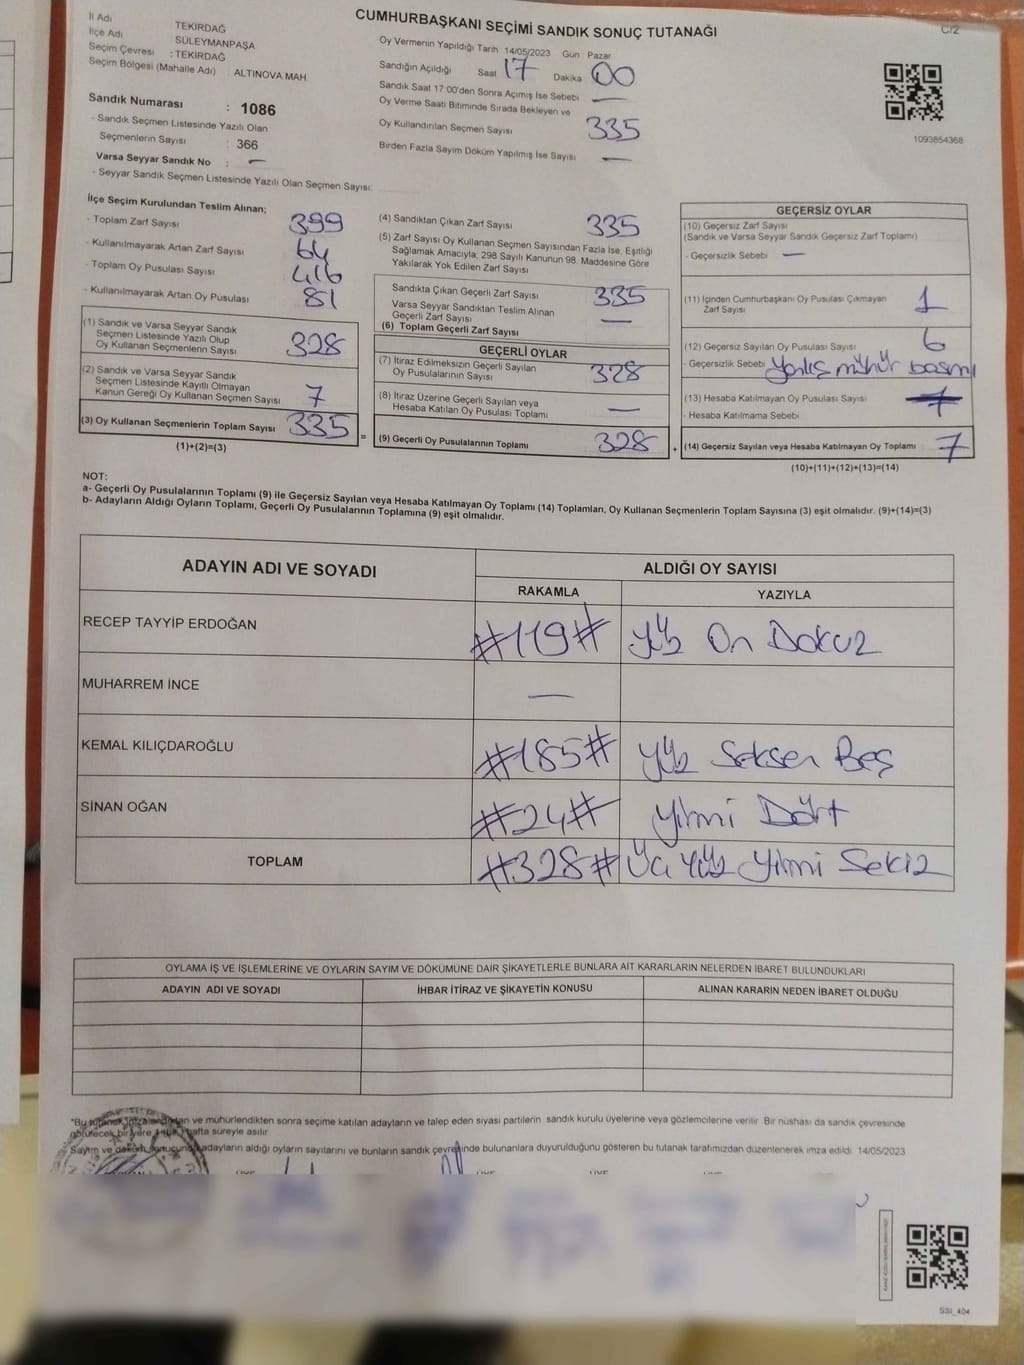 CUMHURBAŞKANI SEÇİMİ SANDIK SONUÇ TUTANAĞI
C/2
İl Adı TEKİRDAĞ
İlçe Adı SÜLEYMANPAŞA
Seçim Çevresi : TEKİRDAĞ
Seçim Bölgesi (Mahalle Adı) : ALTINOVA MAH.
Sandık Numarası : 1086
- Sandık Seçmen Listesinde Yazılı Olan
Seçmenlerin Sayısı : 366
Varsa Seyyar Sandık No : —
- Seyyar Sandık Seçmen Listesinde Yazılı Olan Seçmen Sayısı:
Oy Vermenin Yapıldığı Tarih 14/05/2023 Gün : Pazar
Sandığın Açıldığı Saat 17 Dakika 00
Sandık Saat 17:00'den Sonra Açımış İse Sebebi —
Oy Verme Saati Bitiminde Sırada Bekleyen ve
Oy Kullandırılan Seçmen Sayısı 335
Birden Fazla Sayım Döküm Yapılmış İse Sayısı —
1093854368
İlçe Seçim Kurulundan Teslim Alınan;
- Toplam Zarf Sayısı 399
- Kullanılmayarak Artan Zarf Sayısı 64
- Toplam Oy Pusulası Sayısı 416
- Kullanılmayarak Artan Oy Pusulası 81
(1) Sandık ve Varsa Seyyar Sandık
Seçmen Listesinde Yazılı Olup
Oy Kullanan Seçmenlerin Sayısı 328
(2) Sandık ve Varsa Seyyar Sandık
Seçmen Listesinde Kayıtlı Olmayan
Kanun Gereği Oy Kullanan Seçmen Sayısı 7
(3) Oy Kullanan Seçmenlerin Toplam Sayısı 335
(1)+(2)=(3)
(4) Sandıktan Çıkan Zarf Sayısı 335
(5) Zarf Sayısı Oy Kullanan Seçmen Sayısından Fazla İse, Eşitliği
Sağlamak Amacıyla; 298 Sayılı Kanunun 98. Maddesine Göre
Yakılarak Yok Edilen Zarf Sayısı
Sandıkta Çıkan Geçerli Zarf Sayısı 335
Varsa Seyyar Sandıktan Teslim Alınan
Geçerli Zarf Sayısı —
(6) Toplam Geçerli Zarf Sayısı
GEÇERLİ OYLAR
(7) İtiraz Edilmeksizin Geçerli Sayılan
Oy Pusulalarının Sayısı 328
(8) İtiraz Üzerine Geçerli Sayılan veya
Hesaba Katılan Oy Pusulası Toplamı —
= (9) Geçerli Oy Pusulalarının Toplamı 328
GEÇERSİZ OYLAR
(10) Geçersiz Zarf Sayısı
(Sandık ve Varsa Seyyar Sandık Geçersiz Zarf Toplamı)
- Geçersizlik Sebebi —
(11) İçinden Cumhurbaşkanı Oy Pusulası Çıkmayan
Zarf Sayısı 1
(12) Geçersiz Sayılan Oy Pusulası Sayısı 6
- Geçersizlik Sebebi Yanlış mühür basımı
(13) Hesaba Katılmayan Oy Pusulası Sayısı 7
- Hesaba Katılmama Sebebi
+ (14) Geçersiz Sayılan veya Hesaba Katılmayan Oy Toplamı 7
(10)+(11)+(12)+(13)=(14)
NOT:
a- Geçerli Oy Pusulalarının Toplamı (9) ile Geçersiz Sayılan veya Hesaba Katılmayan Oy Toplamı (14) Toplamları, Oy Kullanan Seçmenlerin Toplam Sayısına (3) eşit olmalıdır. (9)+(14)=(3)
b- Adayların Aldığı Oyların Toplamı, Geçerli Oy Pusulalarının Toplamına (9) eşit olmalıdır.
ADAYIN ADI VE SOYADI ALDIĞI OY SAYISI
RAKAMLA YAZIYLA
RECEP TAYYİP ERDOĞAN #119# Yüz On Dokuz
MUHARREM İNCE —
KEMAL KILIÇDAROĞLU #185# Yüz Seksen Beş
SİNAN OĞAN #24# Yirmi Dört
TOPLAM #328# Üç Yüz Yirmi Sekiz
OYLAMA İŞ VE İŞLEMLERİNE VE OYLARIN SAYIM VE DÖKÜMÜNE DAİR ŞİKAYETLERLE BUNLARA AİT KARARLARIN NELERDEN İBARET BULUNDUKLARI
ADAYIN ADI VE SOYADI İHBAR İTİRAZ VE ŞİKAYETİN KONUSU ALINAN KARARIN NEDEN İBARET OLDUĞU
*Bu tutanak imzalandıktan ve mühürlendikten sonra seçime katılan adayların ve talep eden siyasi partilerin sandık kurulu üyelerine veya gözlemcilerine verilir. Bir nüshası da sandık çevresinde
görülecek bir yere 1 hafta süreyle asılır.
Sayım ve döküm sonucunda adayların aldığı oyların sayılarını ve bunların sandık çevresinde bulunanlara duyurulduğunu gösteren bu tutanak tarafımızdan düzenlenerek imza edildi. 14/05/2023
SSI_404